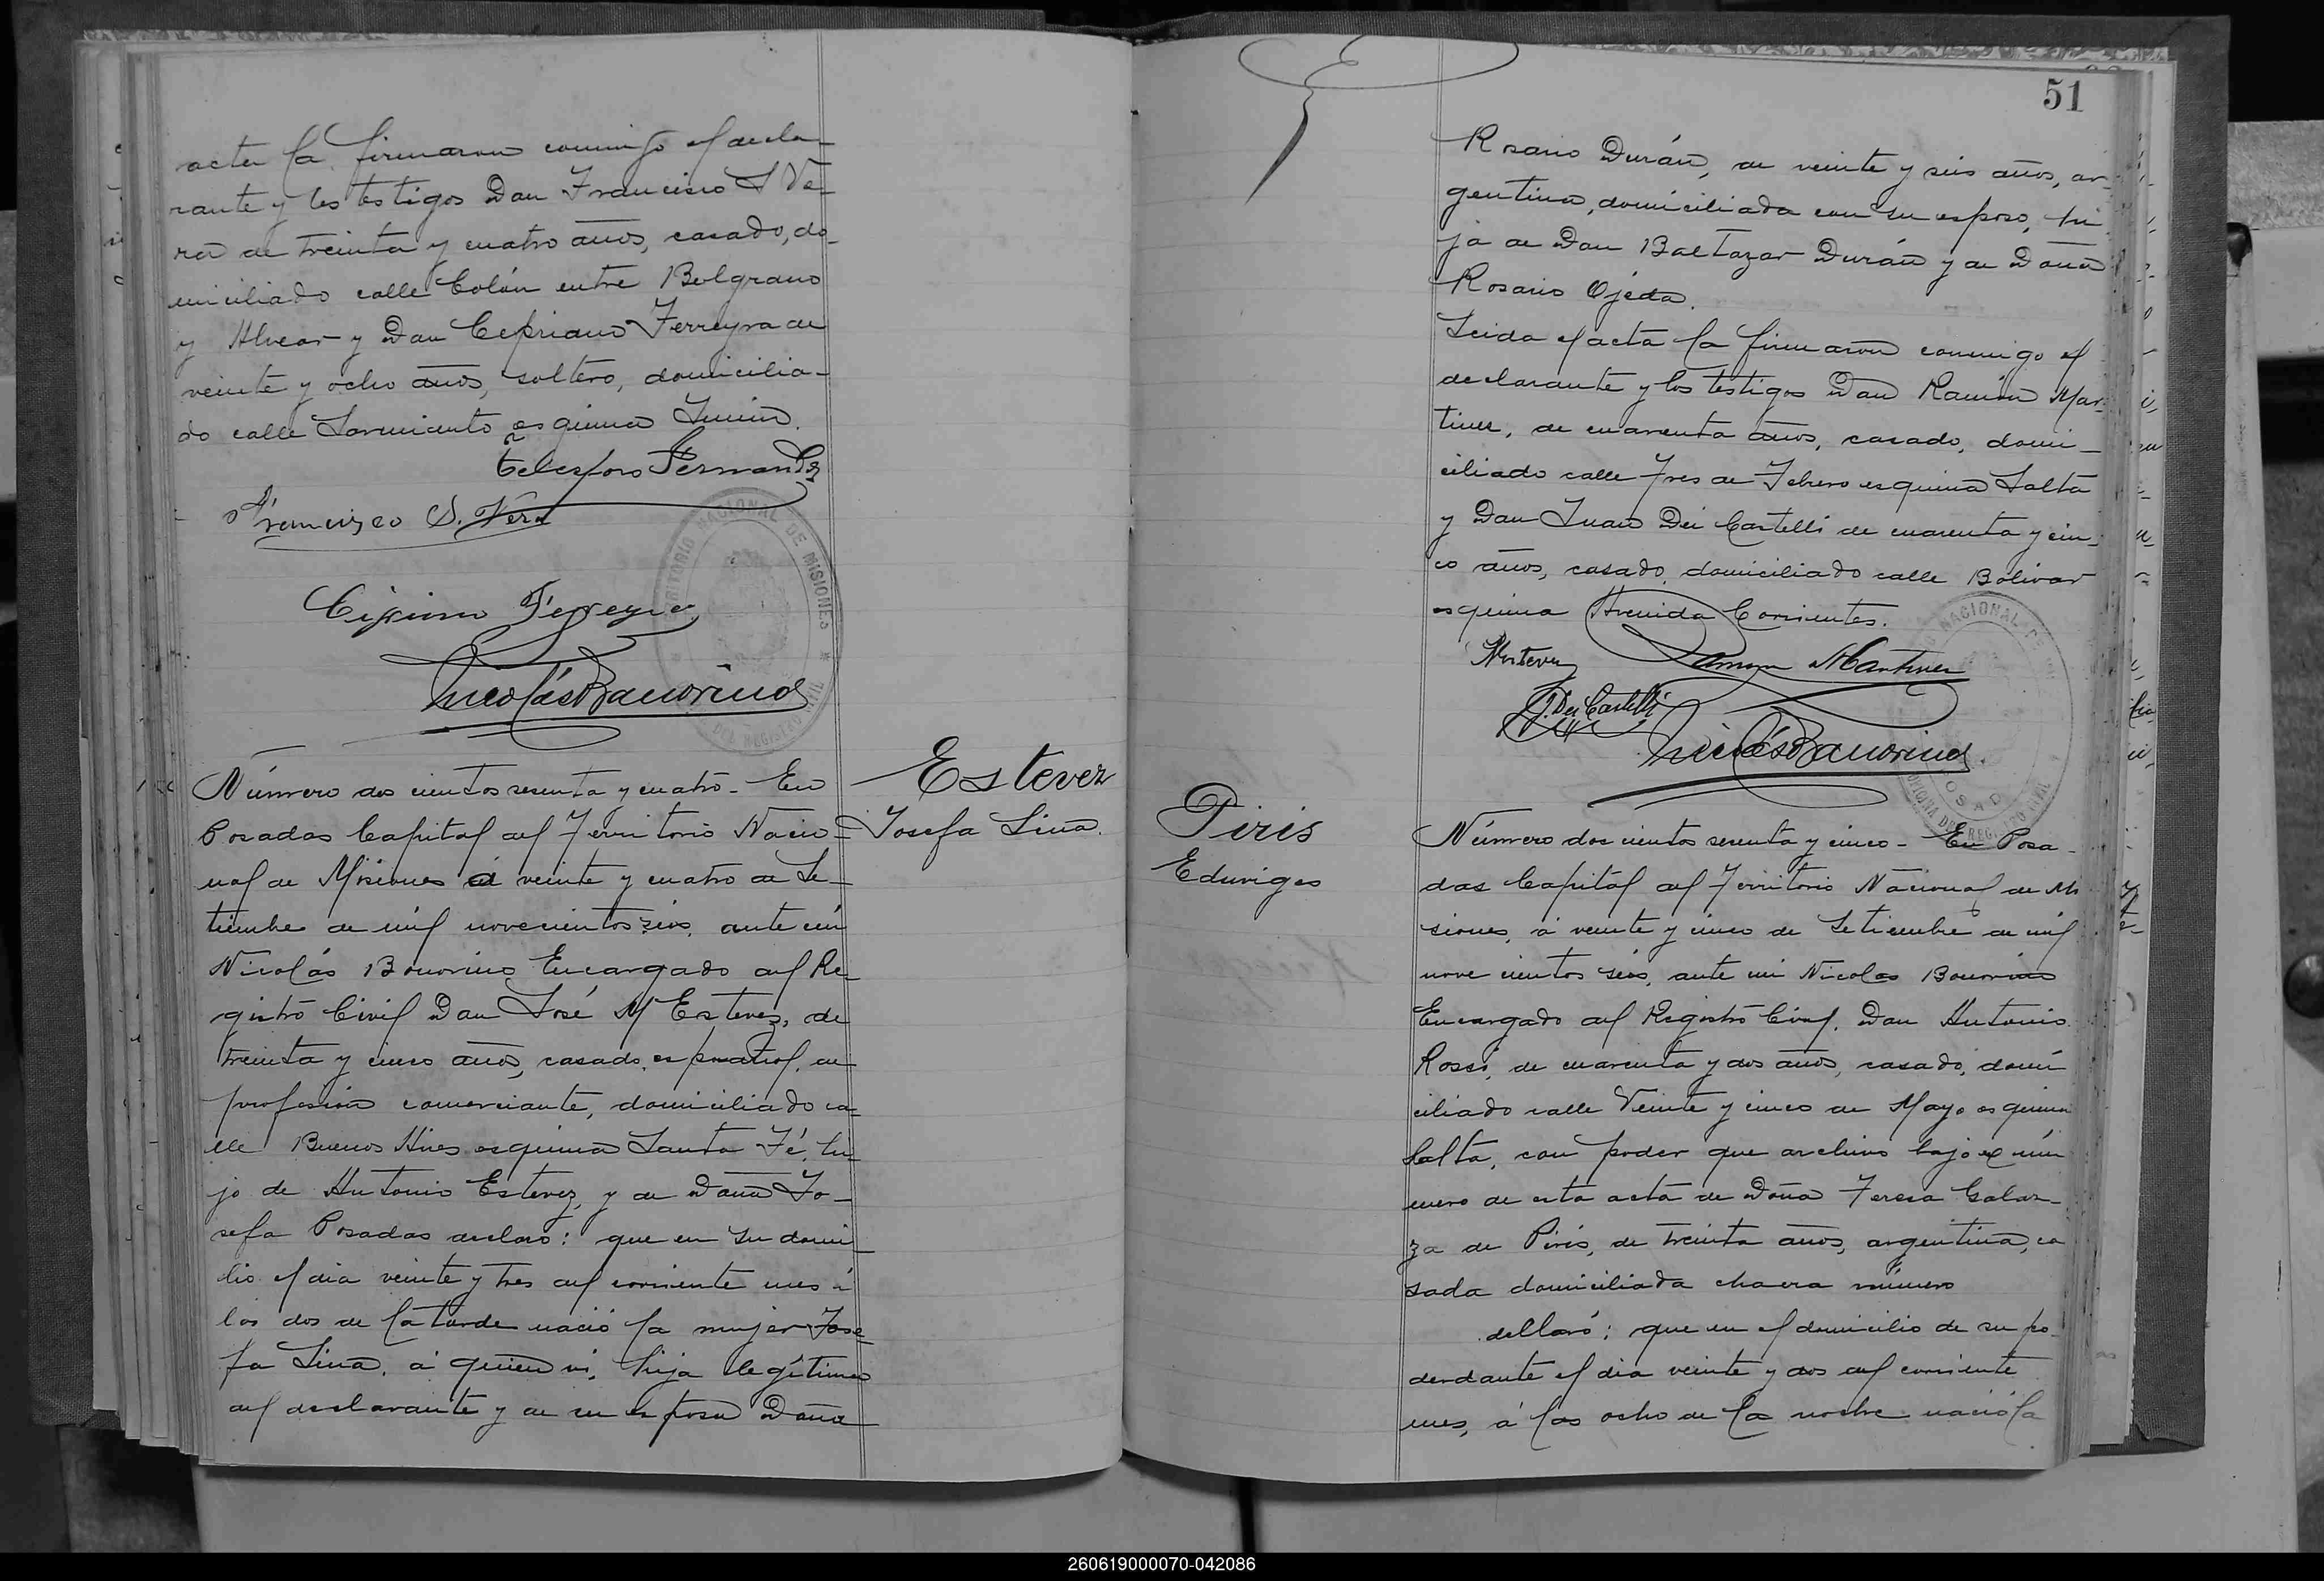 acta la firmaron conmigo el decla-
rante y los testigos Don Francisco S Ve-
ra de treinta y cuatro años, casado, do-
miciliado calle Colón entre Belgrano
y Alvear y Don Cipriano Ferreyra de
veinte y ocho años, soltero, domicilia-
do calle Sarmiento esquina Junin.
Telesforo Fernandez
Francisco S. Vera
Cipriano Ferreyra
Nicolás Bonorino
TERRITORIO NACIONAL DE MISIONES
DEL REGISTRO CIVIL
Número dos cientos sesenta y cuatro - En
Posadas Capital del Territorio Nacio-
nal de Misiones á veinte y cuatro de Se-
tiembre de mil novecientos seis, ante mi
Nicolás Bonorino Encargado del Re-
gistro Civil Don José M Estevez, de
treinta y cinco años, casado, español, de
profesion comerciante, domiciliado ca-
lle Buenos Aires esquina Santa Fé, hi-
jo de Antonio Estevez, y de Doña Jo-
sefa Posadas declaró: que en su domi-
lio el dia veinte y tres del corriente mes á
las dos de la tarde nació la mujer Jose-
fa Lina, á quien vi, hija legítima
del declarante y de su esposa Doña
Estevez
Josefa Lina.
51
Rosario Durán, de veinte y seis años, ar-
gentina, domiciliada con su esposo, hi-
ja de Don Baltazar Durán y de Doña
Rosario Ojeda.
Leida el acta la firmaron conmigo el
declarante y los testigos Don Ramón Mar-
tinez, de cuarenta años, casado, domi-
ciliado calle Tres de Febrero esquina Salta
y Don Juan Dei Castelli de cuarenta y cin-
co años, casado, domiciliado calle Bolivar
esquina Avenida Corrientes.
MEstevez
Ramon Martinez
J. Dei Castelli
Nicolás Bonorino
NACIONAL DE
POSADAS
OFICINA DEL REGISTRO CIVIL
Piris
Eduviges
Número dos cientos sesenta y cinco - En Posa-
das Capital del Territorio Nacional de Mi
siones, á veinte y cinco de Setiembre de mil
nove cientos seis, ante mi Nicolas Bonorino
Encargado del Registro Civil, Don Antonio
Rossi, de cuarenta y dos años, casado, domi
ciliado calle Veinte y cinco de Mayo esquina
Salta, con poder que archivo bajo el nú
mero de esta acta de Doña Teresa Galar-
za de Piris, de treinta años, argentina, ca
sada domiciliada chacra número
declaró: que en el domicilio de su po-
derdante el dia veinte y dos del corriente
mes, á las ocho de la noche nació la
260619000070-042086